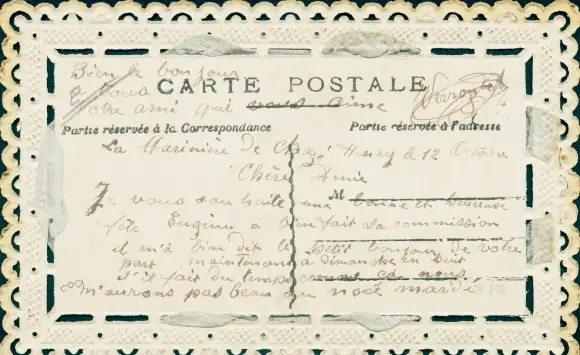 Bien le bonjour
a vous
CARTE POSTALE
votre ami qui vous aime
Partie réservée à la Correspondance
Partie réservée à l'adresse
La Marinière de Henry le 12 Octobre
Chère Amie
M
Je vous souhaite une bonne et heureuse
fête Eugène a bien fait sa commission
il m'a bien dit le petit bonjour de votre
part maintenant a dimanche en huit
s'il fait du temps comme ca nous
m'aurons pas beau au noce mardi